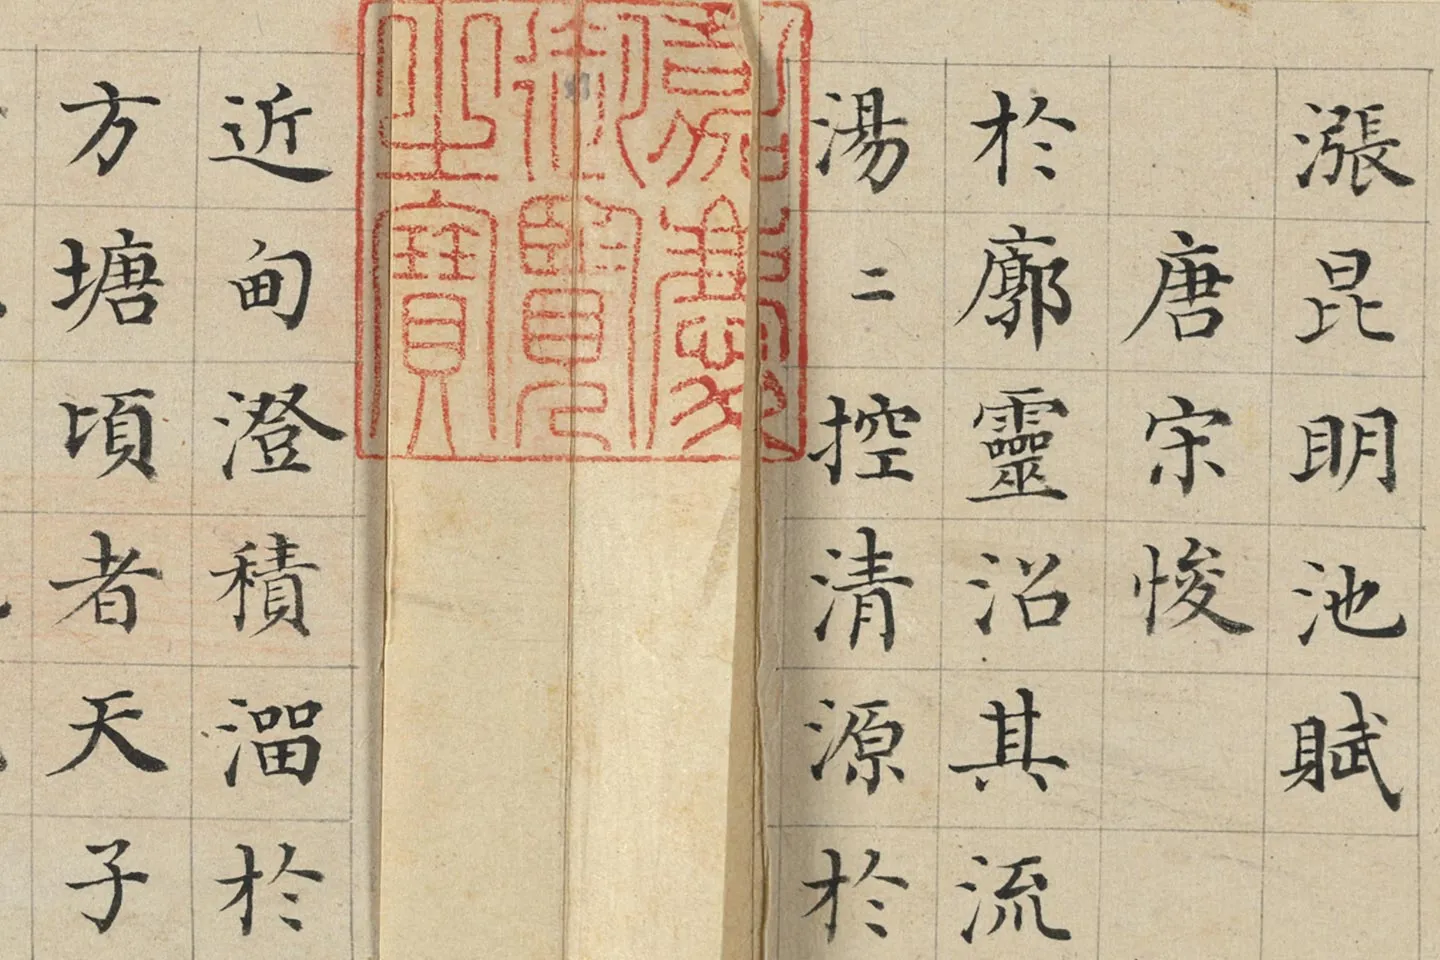 漲昆明池賦
唐宋悛
於廓靈沼其流
湯二控清源於
嘉慶
御覽
之寶
近甸澄積溜於
方塘頃者天子